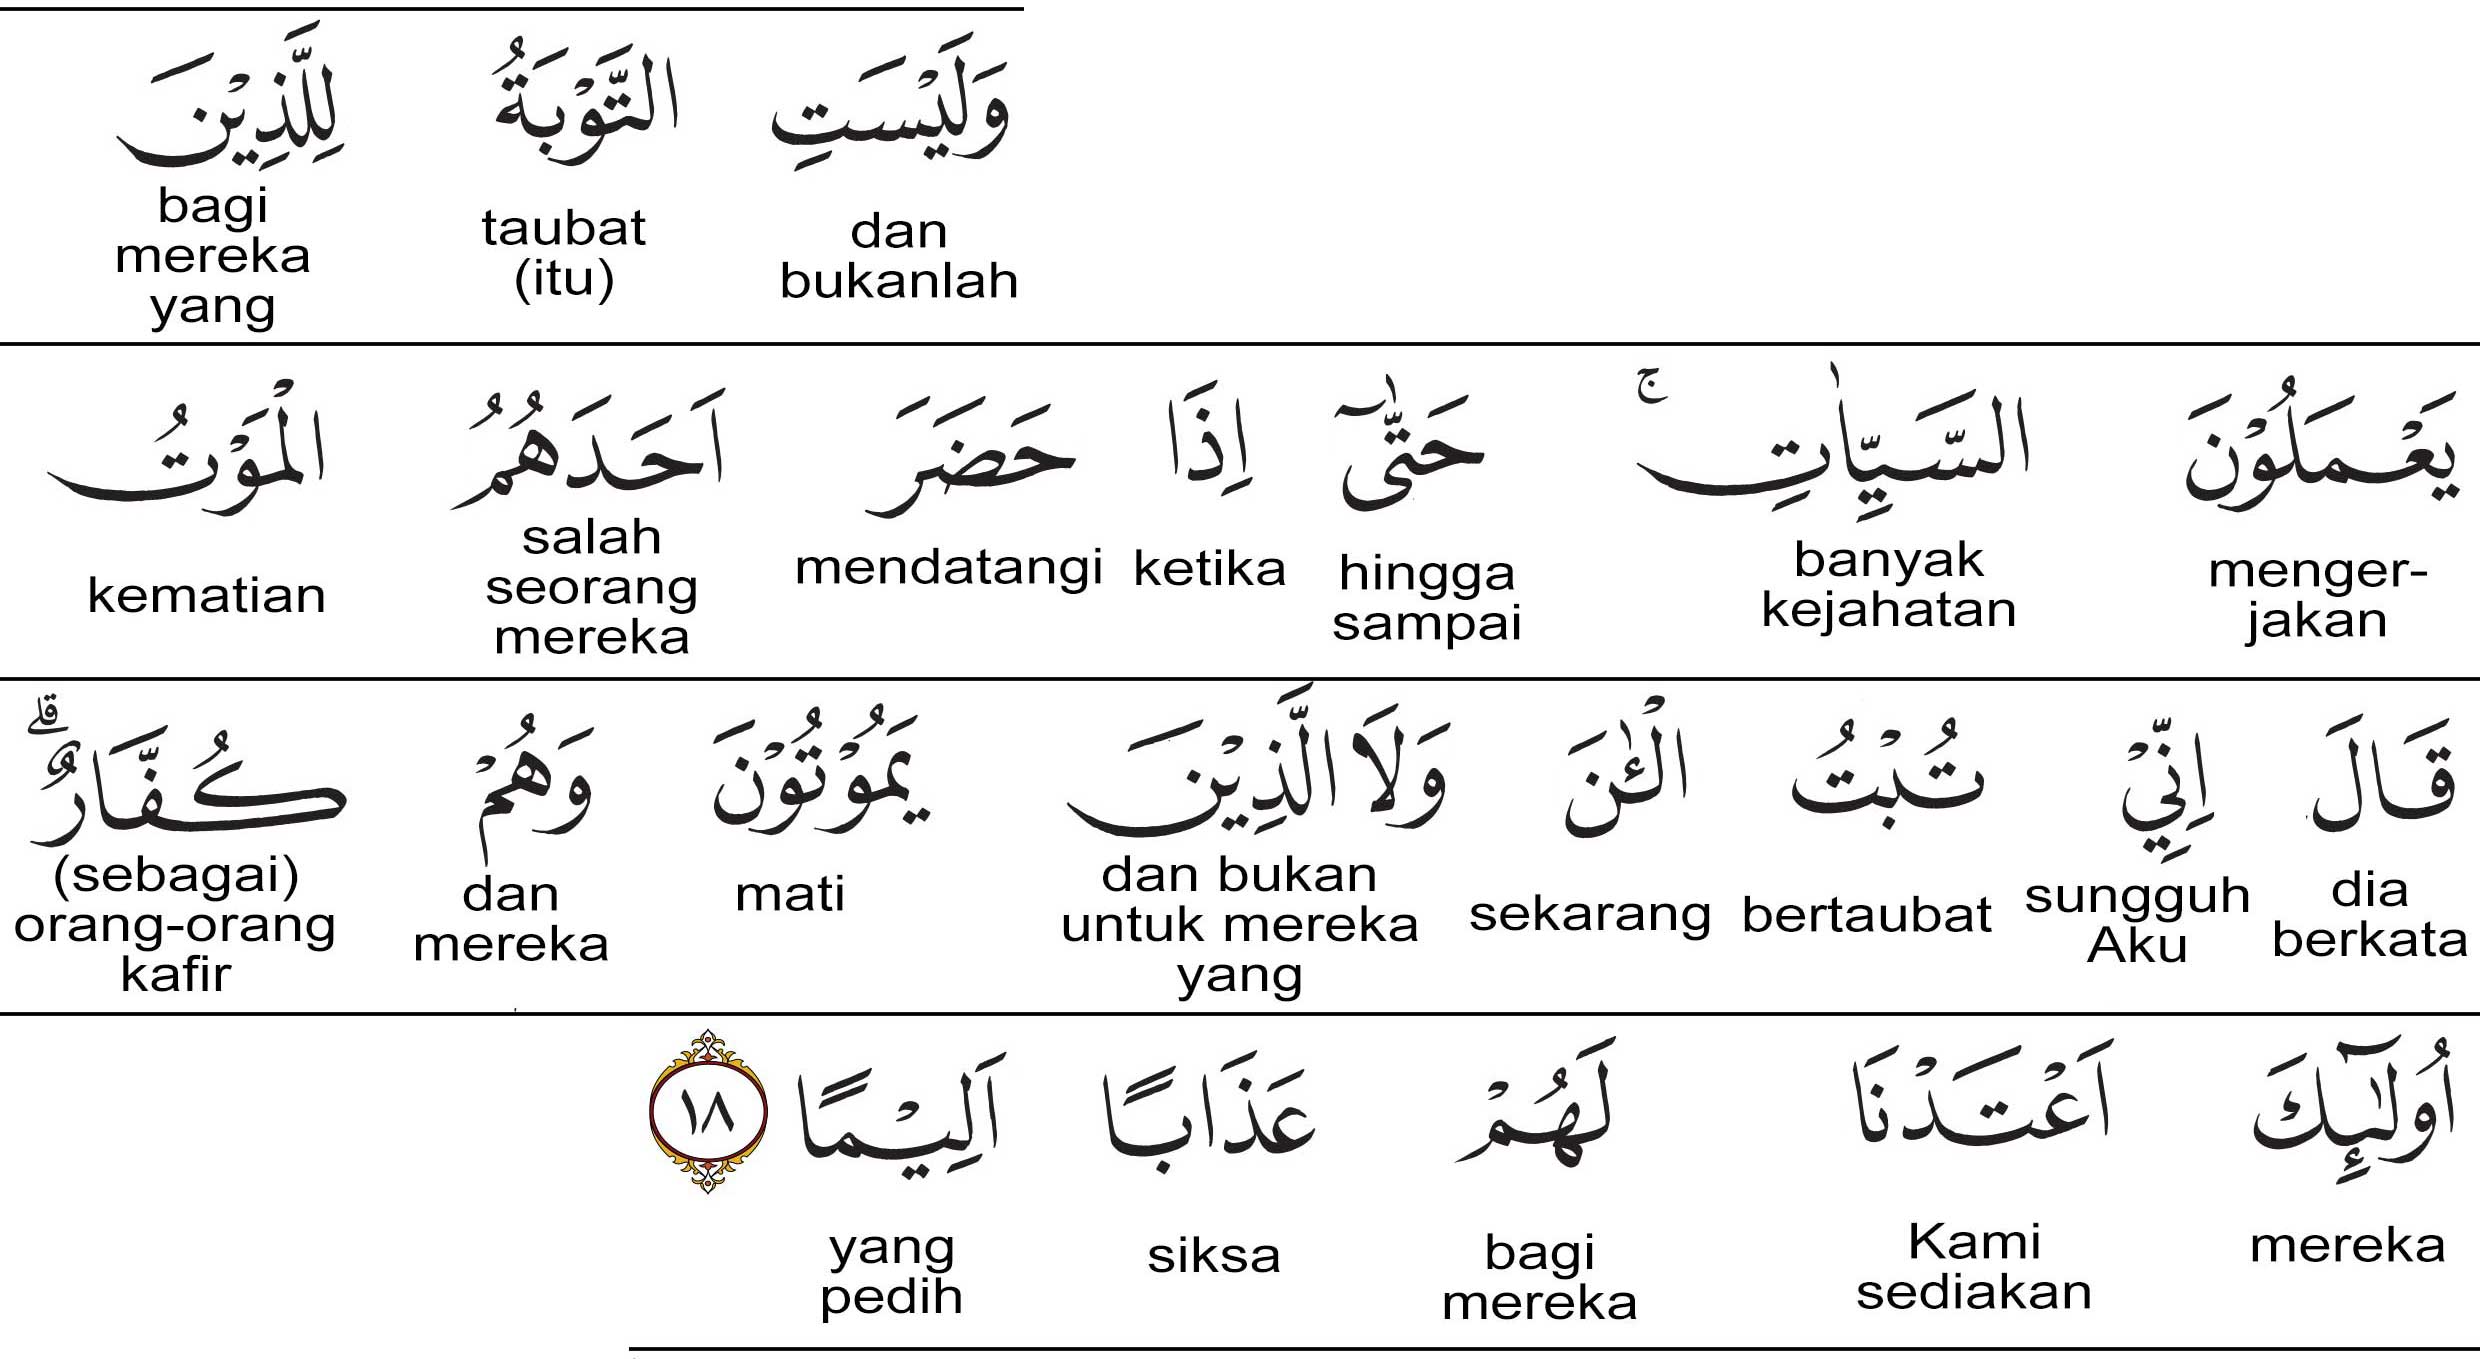 وَلَيْسَتِ التَّوْبَةُ لِلَّذِيْنَ
dan bukanlah taubat (itu) bagi mereka yang
يَعْمَلُوْنَ السَّيِّاٰتِۚ حَتّٰىٓ اِذَا حَضَرَ اَحَدَهُمُ الْمَوْتُ
menger-jakan banyak kejahatan hingga sampai ketika mendatangi salah seorang mereka kematian
قَالَ اِنِّيْ تُبْتُ الْـٰٔنَ وَلَا الَّذِيْنَ يَمُوْتُوْنَ وَهُمْ كُفَّارٌۗ
dia berkata sungguh Aku bertaubat sekarang dan bukan untuk mereka yang mati dan mereka (sebagai) orang-orang kafir
اُولٰۤىِٕكَ اَعْتَدْنَا لَهُمْ عَذَابًا اَلِيْمًا ١٨
mereka Kami sediakan bagi mereka siksa yang pedih